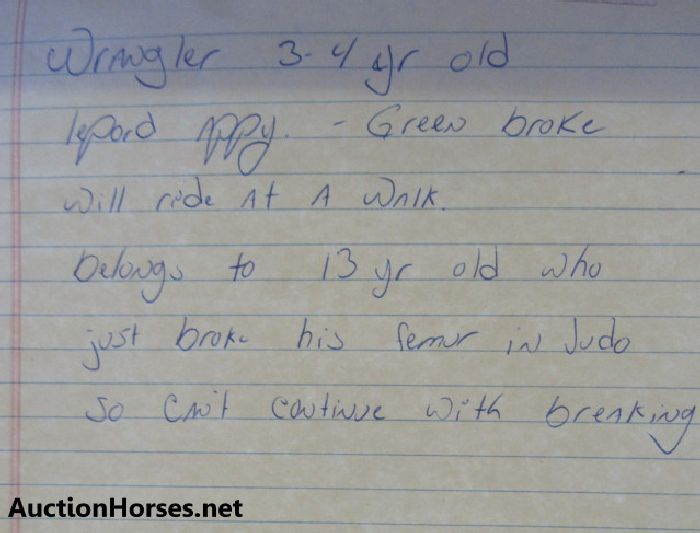 Wrangler 3-4 yr old
lepord Appy. - Green broke
will ride At A walk.
Belongs to 13 yr old who
just broke his femur in Judo
so can't continue with breaking
AuctionHorses.net